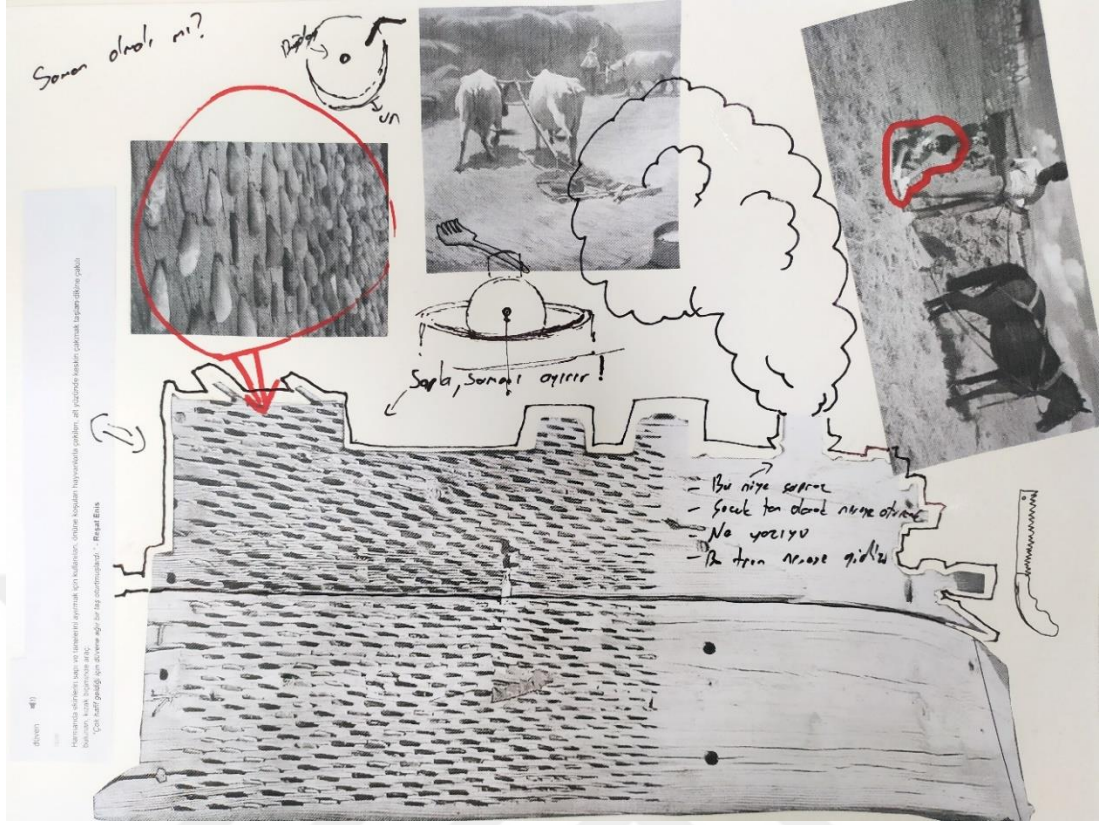 Saman olmalı mı?
un
Sapla, samanı ayırır!
- Bu niye
- Çocuk tam olarak nereye
- Ne yazıyo
- Bu tren nereye
düven
Harmanda ekinlerin sapı ve tanelerini ayırmak için kullanılan, önüne koşulan hayvanlarla çekilen, alt yüzünde keskin çakmak taşları dikine çakılı
bulunan, kızak biçiminde araç.
"Çok hafif geldiği için düvene ağır bir taş oturtmuşlardı." - Reşat Enis